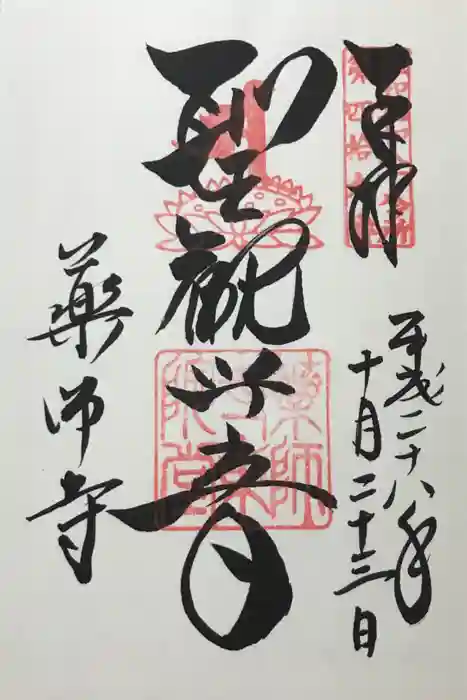 奉拝
平成二十八年
十月二十三日
聖観世音
藥師
寺東
院堂
藥師寺